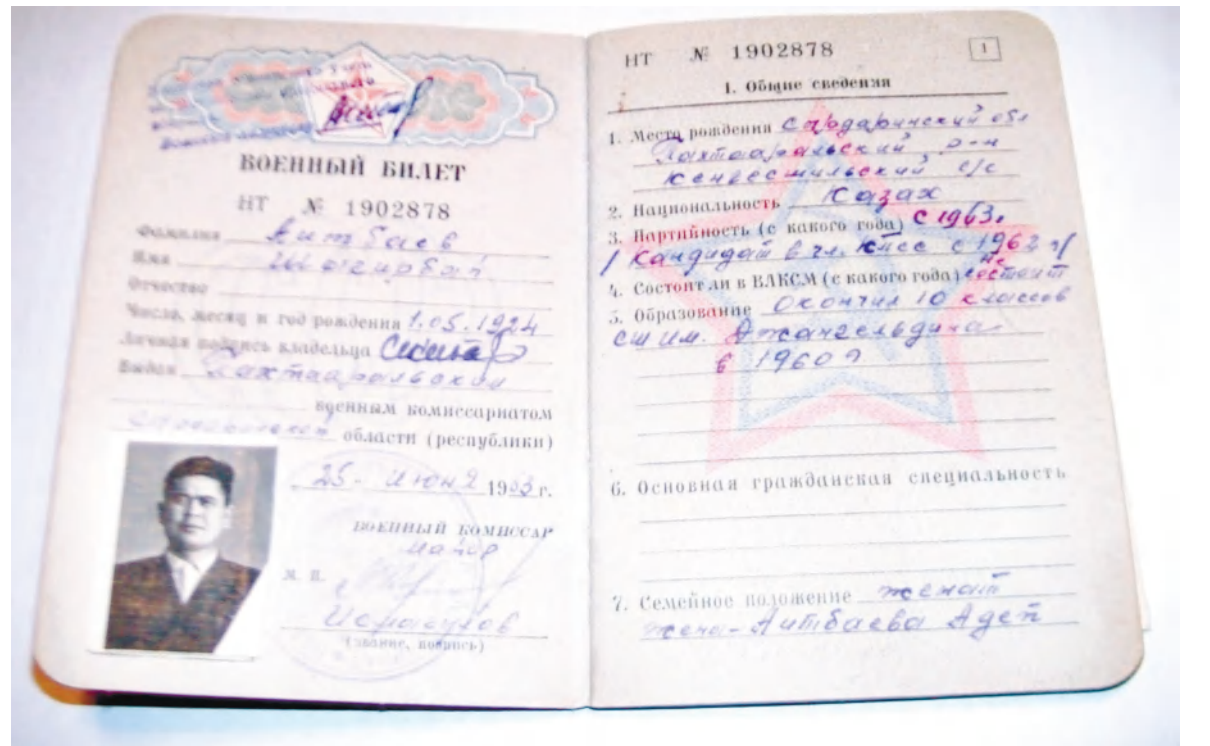 ВОЕННЫЙ БИЛЕТ
НТ № 1902878
Фамилия Аитбаев
Имя
Отчество
Число, месяц и год рождения 1.05.1924
Личная подпись владельца
Выдан Пахтааральский
военным комиссариатом
области (республики)
25. Июня 1963 г.
ВОЕННЫЙ КОМИССАР
майор
М. П.
(звание, подпись)
НТ № 1902878
1
1. Общие сведения
1. Место рождения Сырдаринский обл
Пахтааральский р-н
с/с
2. Национальность Казах
3. Партийность (с какого года) с 1963г
/ Кандидат в чл. КПСС с 1962 г/
4. Состоит ли в ВЛКСМ (с какого года) не состоит
5. Образование Окончил 10 классов
СШ им. Джангельдина
в 1960г
6. Основная гражданская специальность
7. Семейное положение женат
жена - Аитбаева